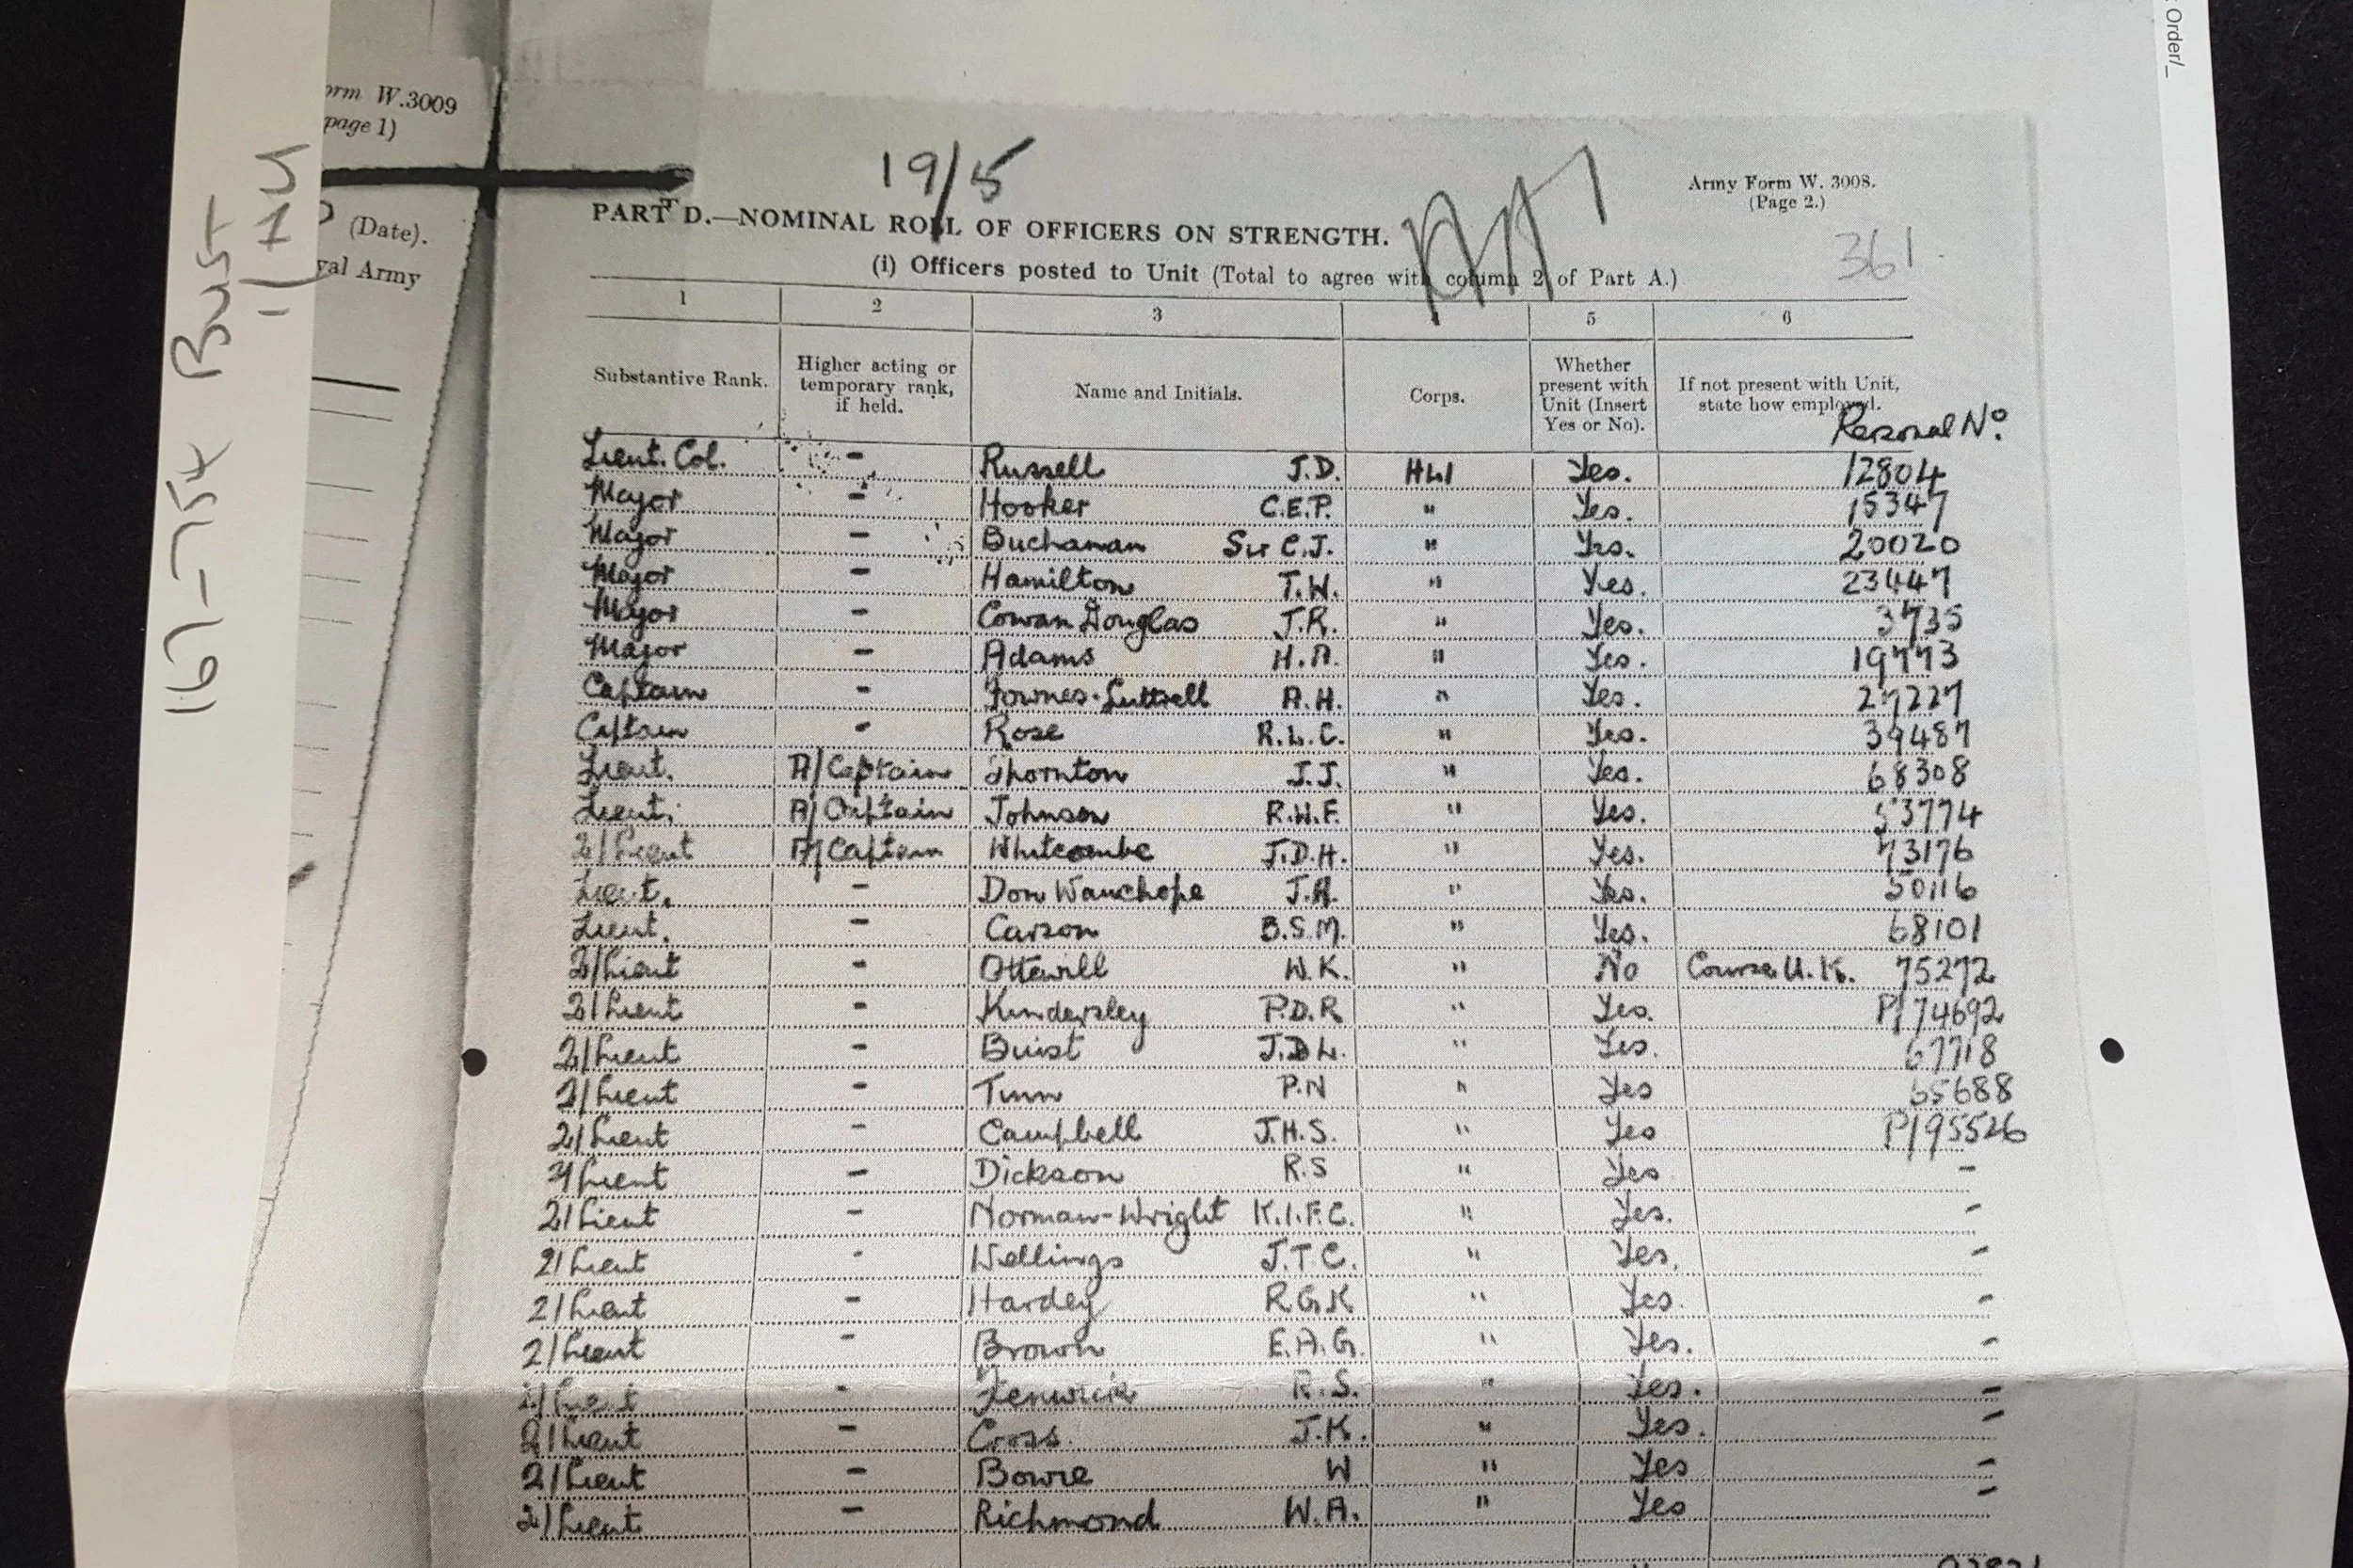 : Order/_
orm W.3009
page 1)
(Date).
yal Army
167-754 Bust
19/5
Army Form W. 3008.
(Page 2.)
361.
PART D.—NOMINAL ROLL OF OFFICERS ON STRENGTH.
(i) Officers posted to Unit (Total to agree with column 2 of Part A.)
1 2 3 5 6
Substantive Rank. Higher acting or temporary rank, if held. Name and Initials. Corps. Whether present with Unit (Insert Yes or No). If not present with Unit, state how employed.
Personal No.
Lieut. Col. - Russell J.D. HLI Yes. 12804
Major - Hooker C.E.P. " Yes. 15347
Major - Buchanan Sir C.J. " Yes. 20020
Major - Hamilton T.W. " Yes. 23447
Major - Cowan Douglas J.R. " Yes. 3735
Major - Adams H.A. " Yes. 19773
Captain - Fownes-Luttrell A.H. " Yes. 27227
Captain - Rose R.L.C. " Yes. 39487
Lieut. A/Captain Thornton J.J. " Yes. 68308
Lieut. A/Captain Johnson R.H.F. " Yes. 53774
2/Lieut A/Captain Whitcombe J.D.H. " Yes. 73176
Lieut. - Don Wauchope J.A. " Yes. 50116
Lieut. - Carson B.S.M. " Yes. 68101
2/Lieut - Ottewill W.K. " No Course U.K. 75272
2/Lieut - Kindersley P.D.R " Yes. P/74692
2/Lieut - Buist J.D.L. " Yes. 67718
2/Lieut - Tunn P.N " Yes 65688
2/Lieut - Campbell J.H.S. " Yes P/95526
2/Lieut - Dickson R.S " Yes -
2/Lieut - Norman-Wright K.I.F.C. " Yes. -
2/Lieut - Wellings J.T.C. " Yes. -
2/Lieut - Hardey R.G.K " Yes. -
2/Lieut - Brown E.A.G. " Yes. -
2/Lieut - Fenwick R.S. " Yes. -
2/Lieut - Cross. J.K. " Yes. -
2/Lieut - Bowie W " Yes -
2/Lieut - Richmond W.A. " Yes -